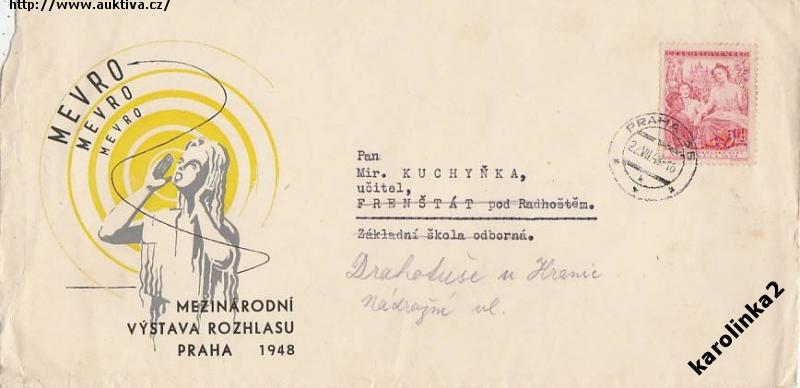 http://www.auktiva.cz/
MEVRO
MEVRO
MEVRO
MEZINÁRODNÍ
VÝSTAVA ROZHLASU
PRAHA 1948
ČESKOSLOVENSKO
PRAHA
22.VII.48-16
k
Pan
Mir. KUCHYŇKA,
učitel,
FRENŠTÁT pod Radhoštěm.
Základní škola odborná.
Drahotuše u Hranic
Nádražní ul.
karolinka2